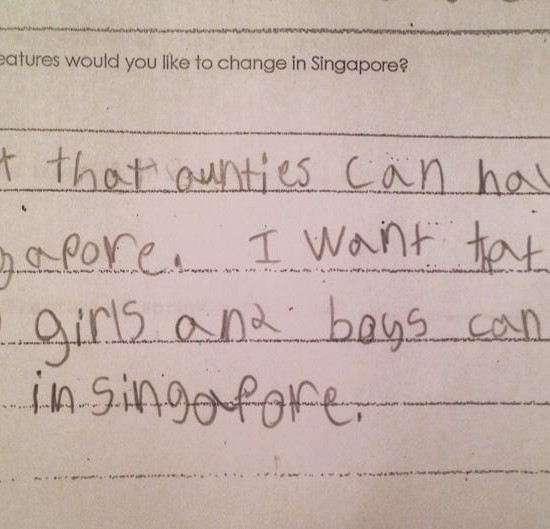 eatures would you like to change in Singapore?
t that aunties can hav
gapore. I want tat
girls and boys can
in singapore.